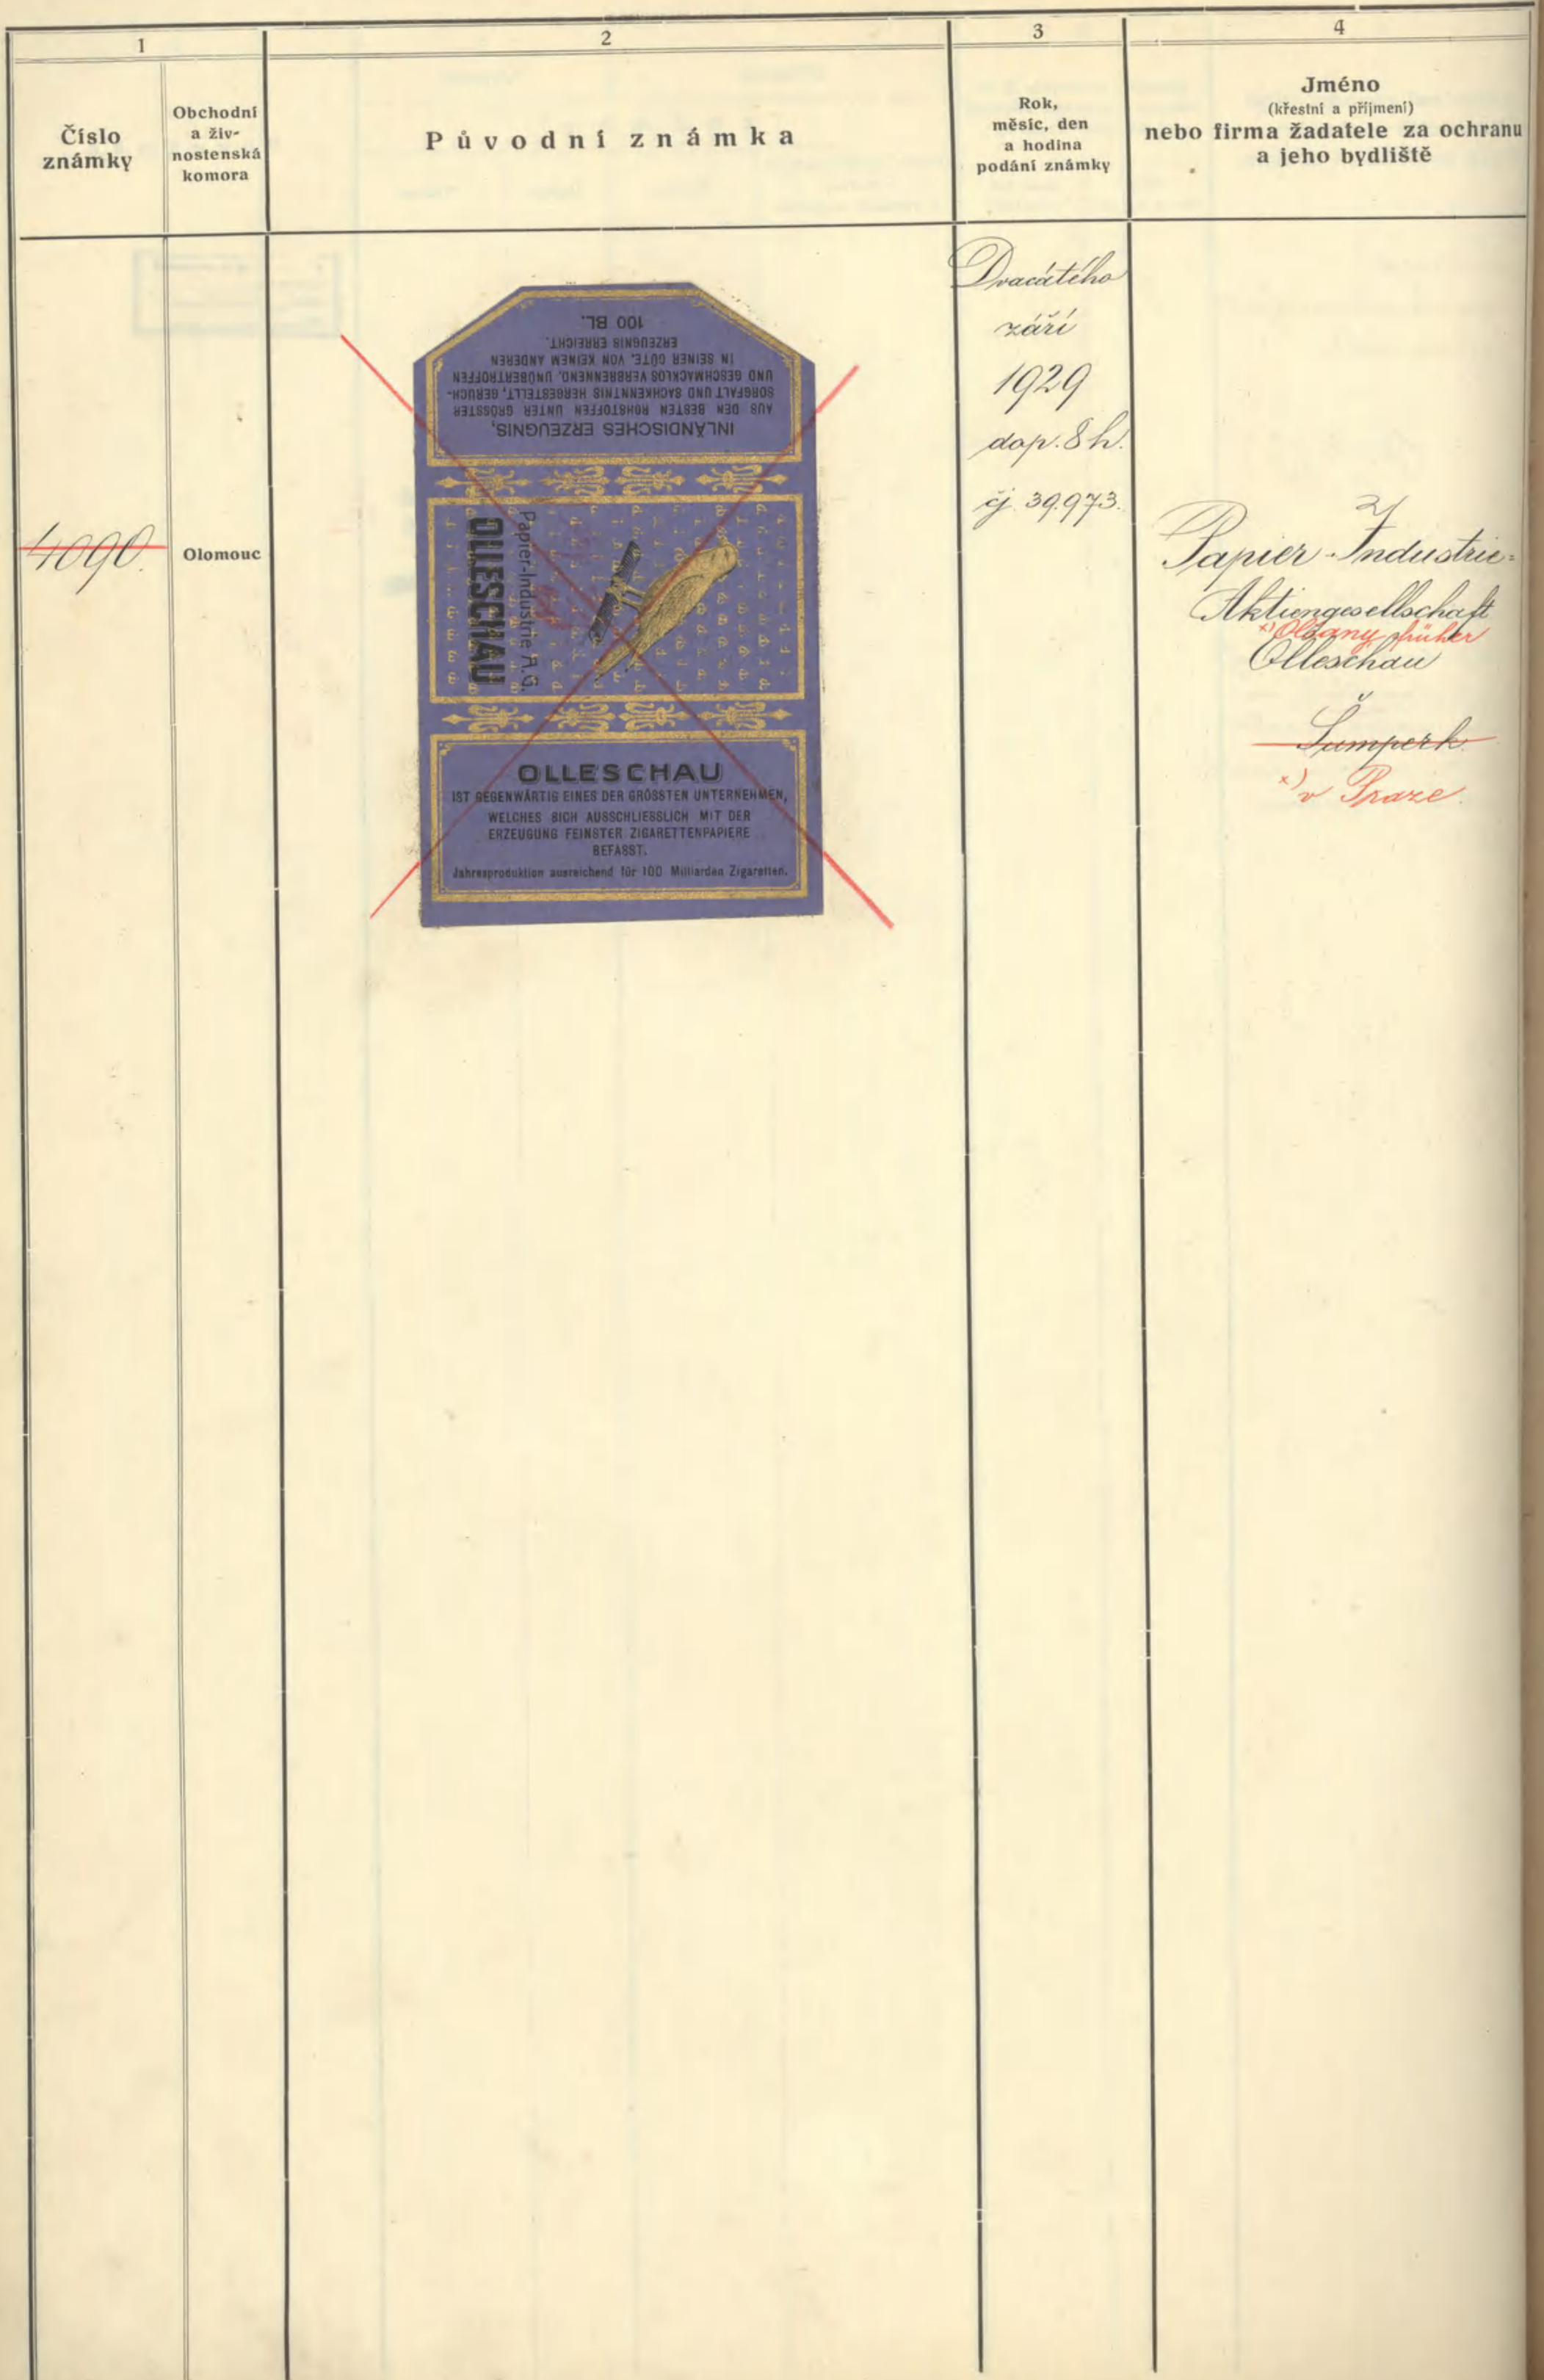 1
2
3
4
Číslo
známky
Obchodní
a živ-
nostenská
komora
Původní známka
Rok,
měsíc, den
a hodina
podání známky
Jméno
(křestní a příjmení)
nebo firma žadatele za ochranu
a jeho bydliště
4090.
Olomouc
100 BL.
ERZEUGNIS ERREICHT.
IN SEINER GÜTE, VON KEINEM ANDEREN
UND GESCHMACKLOS VERBRENNEND, UNÜBERTROFFEN
SORGFALT UND SACHKENNTNIS HERGESTELLT, GERUCH-
AUS DEN BESTEN ROHSTOFFEN UNTER GRÖSSTER
INLÄNDISCHES ERZEUGNIS,
Papier-Industrie A.G.
OLLESCHAU
OLLESCHAU
IST GEGENWÄRTIG EINES DER GRÖSSTEN UNTERNEHMEN,
WELCHES SICH AUSSCHLIESSLICH MIT DER
ERZEUGUNG FEINSTER ZIGARETTENPAPIERE
BEFASST.
Jahresproduktion ausreichend für 100 Milliarden Zigaretten.
Dvacátého
září
1929
dop. 8 h.
čj. 39.973.
Papier-Industrie-
Aktiengesellschaft
x) Olšany früher
Olleschau
Šumperk
x) v Praze.